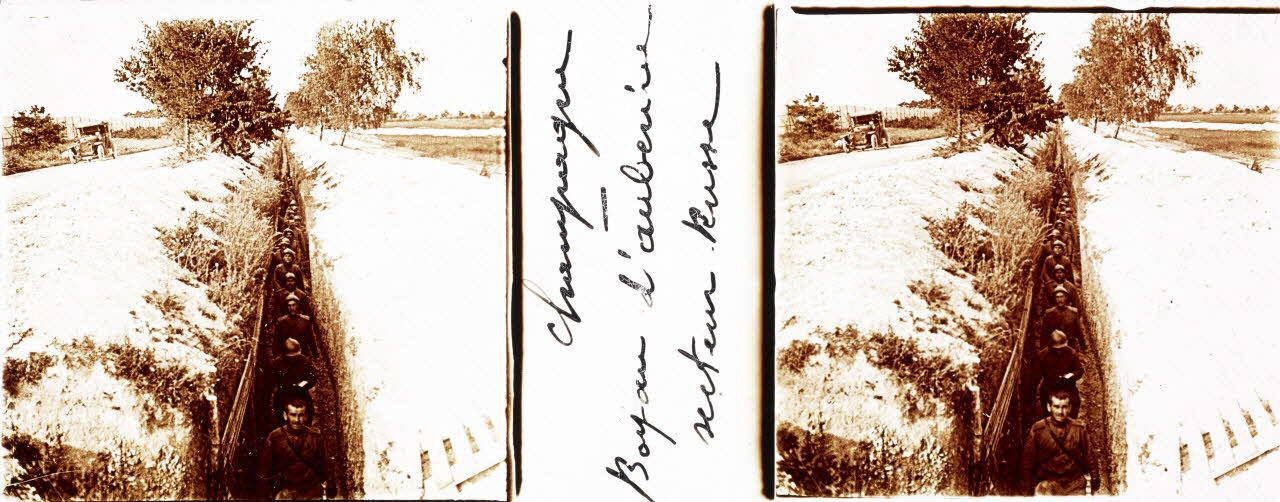 Champagne
Boyau d'auberive
secteur Russe